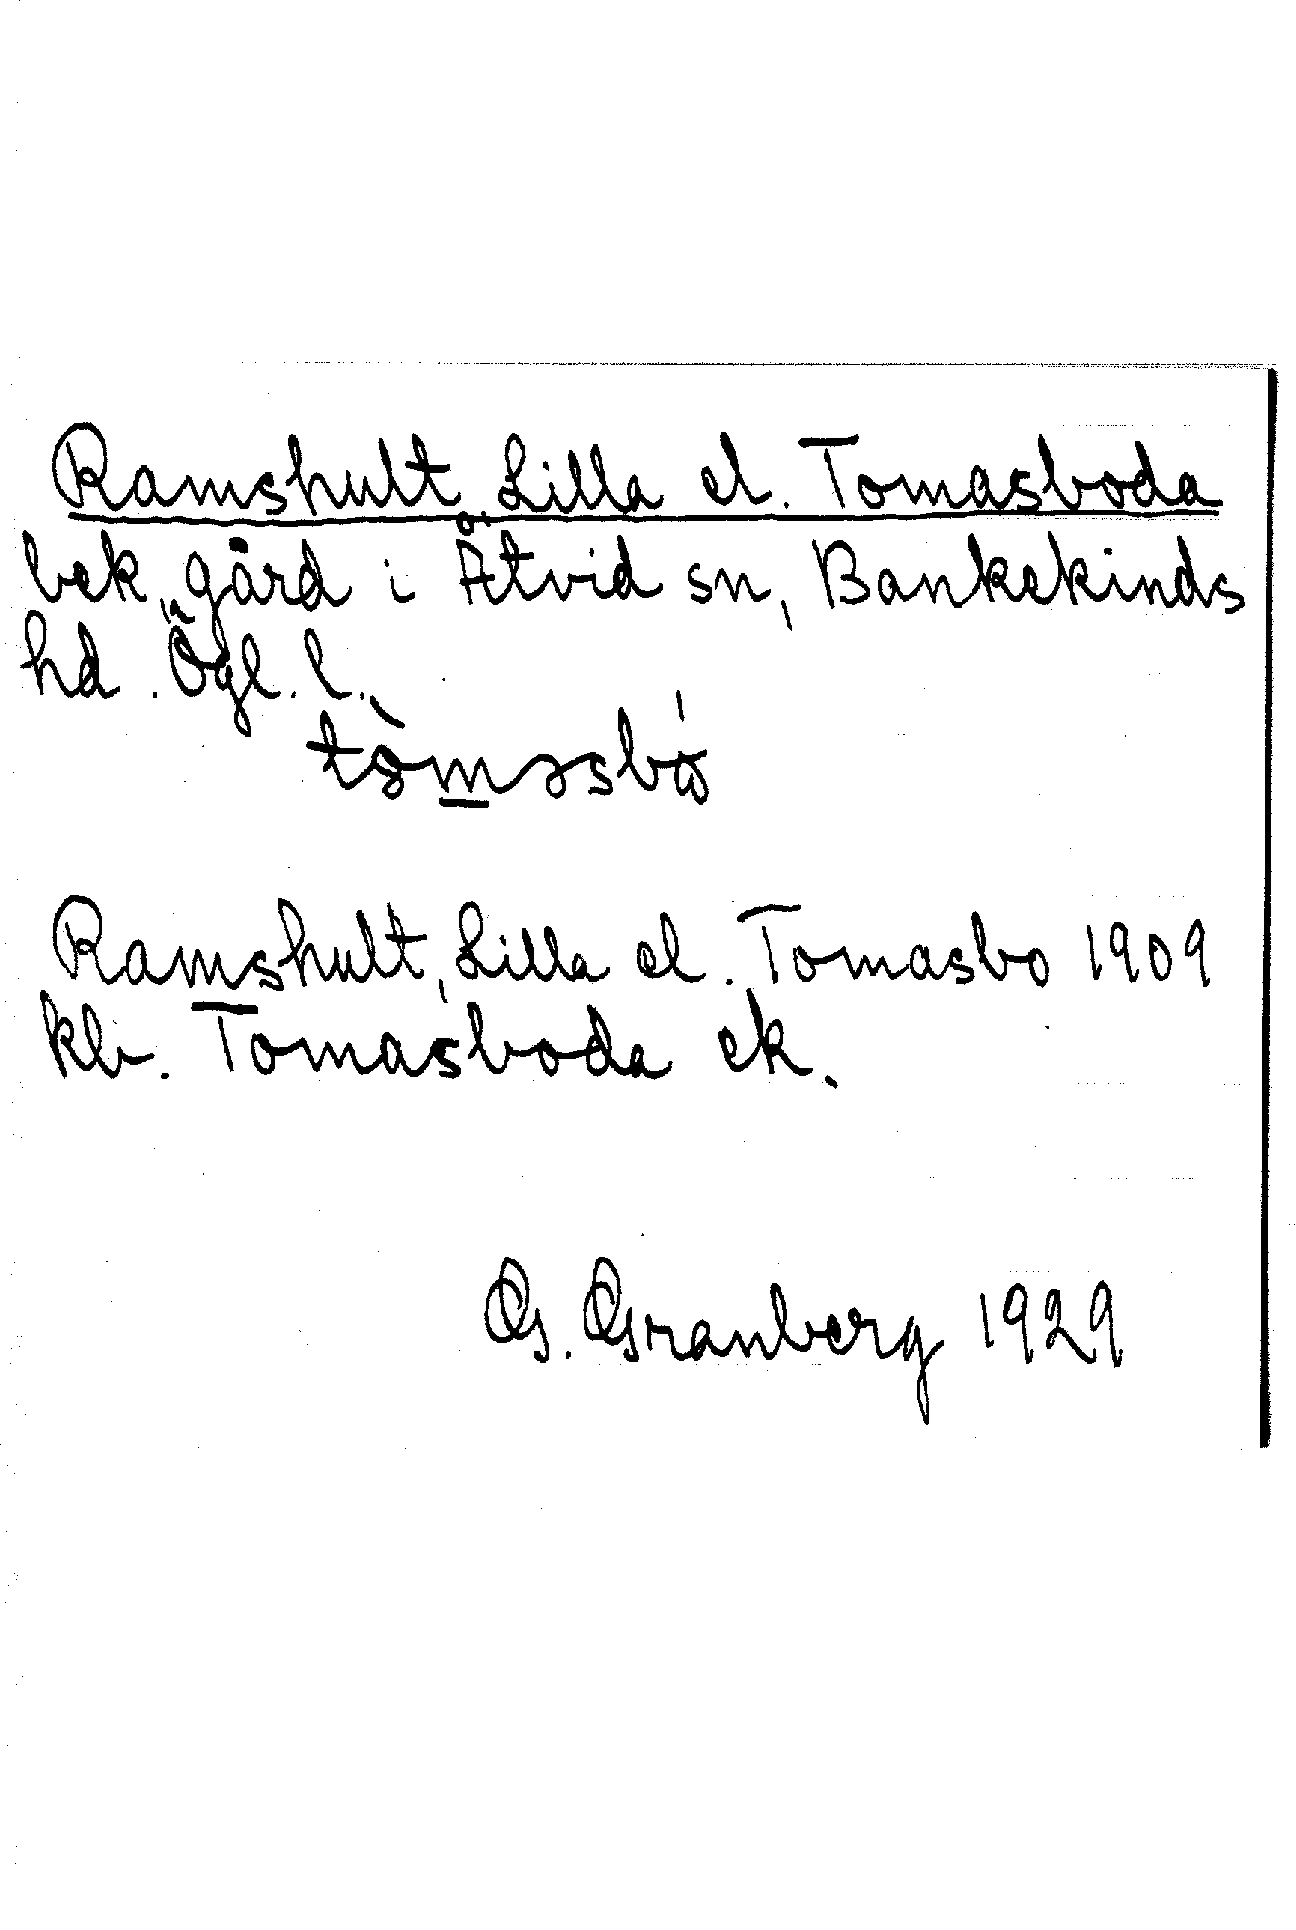 Ramshult, Lilla el. Tomasboda
bek. gård i Åtvid sn, Bankekinds
hd. Ögl. l.
Ramshult, Lilla el. Tomasbo 1909
kb. Tomasboda ek.
G. Granberg 1929